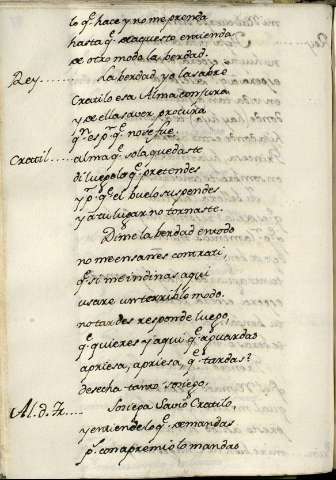 lo q. hace y no me prenda
hasta q. de aquesto entienda
de otro modo la berdad.
Rey..... La berdad, yo la sabré
Cratilo esa Alma conjura
y de ella saver procura
qn. es pr. q. no se fue
Cratil..... alma q. sola quedaste
di luego lo q. pretendes
y pr. q. el buelo suspendes
y a tu lugar no tornaste.
Dime la berdad en todo
no me ensañes contra ti,
q. si me indinas aqui
usare un terrible modo.
no tardes responde luego,
q. quieres y a qui q. aguardas
apriesa, apriesa, q. tardas?
desecha tanto sosiego.
Al. d. Fr.... Sosiega Savio Cratilo,
y entiende lo q. demandas
pr. con apremio lo mandas